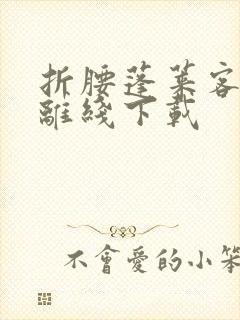 折腰蓬莱客
離綫下載
不會愛的小笨